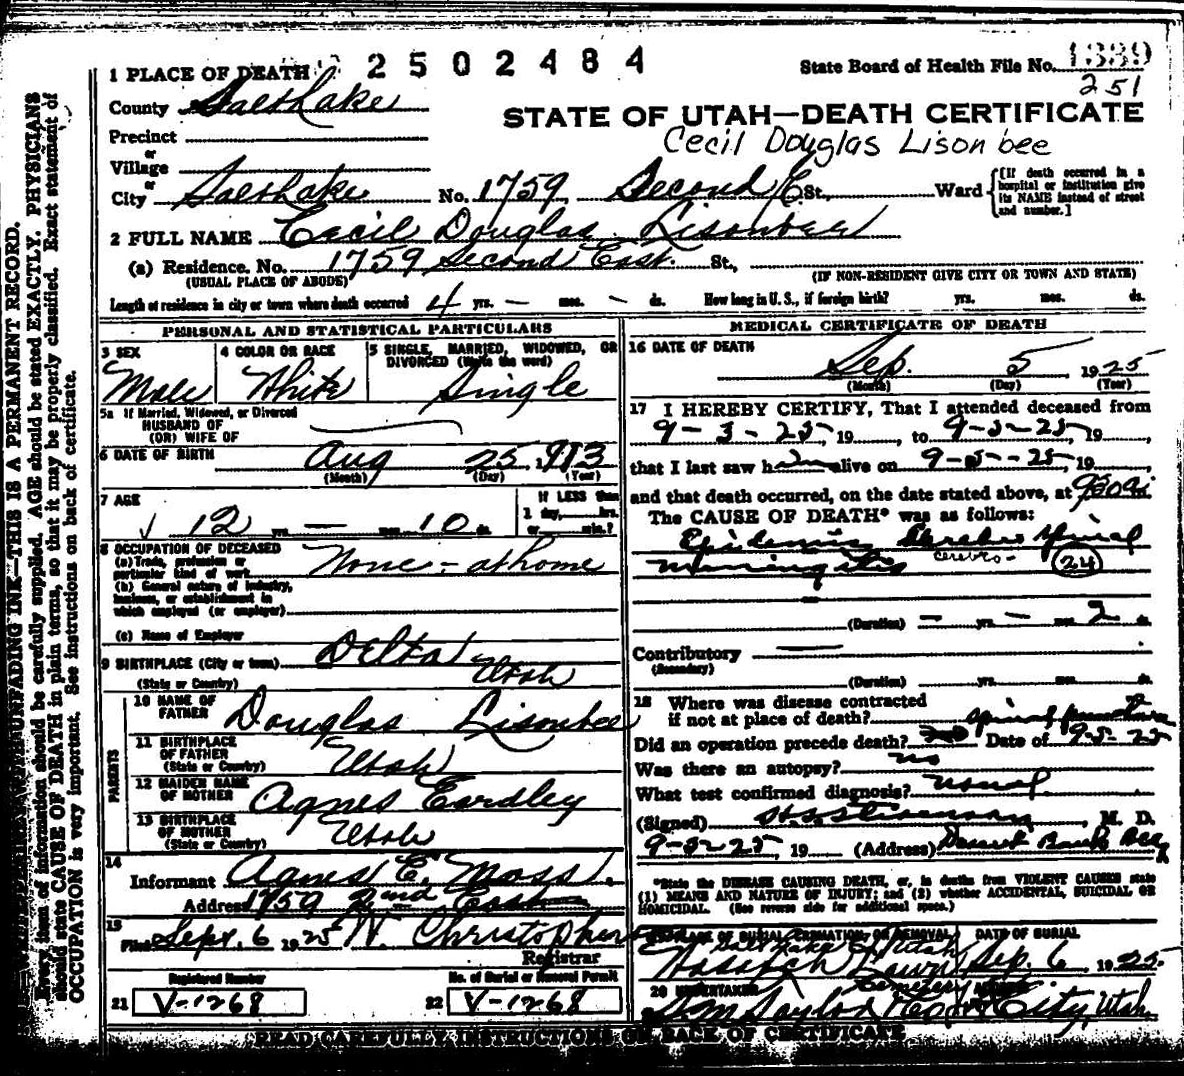 2502484
State Board of Health File No. 1339
251
1 PLACE OF DEATH
County Salt Lake
STATE OF UTAH—DEATH CERTIFICATE
Cecil Douglas Lisonbee
Precinct
or
Village
or
City Salt Lake No. 1759 Second E St., Ward
[If death occurred in a hospital or institution give its NAME instead of street and number.]
2 FULL NAME Cecil Douglas Lisonbee
(a) Residence. No. 1759 Second East. St.,
(USUAL PLACE OF ABODE) (IF NON-RESIDENT GIVE CITY OR TOWN AND STATE)
Length of residence in city or town where death occurred 4 yrs. — mos. — ds. How long in U. S., if foreign birth? yrs. mos. ds.
PERSONAL AND STATISTICAL PARTICULARS
3 SEX
Male
4 COLOR OR RACE
White
5 SINGLE, MARRIED, WIDOWED, OR
DIVORCED (Write the word)
Single
5a If Married, Widowed, or Divorced
HUSBAND OF
(OR) WIFE OF
6 DATE OF BIRTH Aug 25, 1913
(Month) (Day) (Year)
7 AGE
12 yrs. — mos. 10 ds.
IF LESS than
1 day, hrs.
or min.?
8 OCCUPATION OF DECEASED
(a) Trade, profession or
particular kind of work None - at home
(b) General nature of industry,
business, or establishment in
which employed (or employer)
(c) Name of Employer
9 BIRTHPLACE (City or town) Delta
(State or Country) Utah
PARENTS
10 NAME OF
FATHER Douglas Lisonbee
11 BIRTHPLACE
OF FATHER
(State or Country) Utah
12 MAIDEN NAME
OF MOTHER Agnes Eardley
13 BIRTHPLACE
OF MOTHER
(State or Country) Utah
14
Informant Agnes E. Moss.
Address 1759 2nd East
15
Filed Sept. 6 1925 W. Christopherson
Registrar
Registered Number
21 V-1268
No. of Burial or Removal Permit
22 V-1268
MEDICAL CERTIFICATE OF DEATH
16 DATE OF DEATH
Sep. 5 1925
(Month) (Day) (Year)
17 I HEREBY CERTIFY, That I attended deceased from
9-3-25, 19, to 9-5-25, 19,
that I last saw him alive on 9-5-25, 19,
and that death occurred, on the date stated above, at
The CAUSE OF DEATH* was as follows:
Epidemic Cerebro Spinal
Meningitis cerebro- 24
(Duration) — yrs. — mos. 2 ds.
Contributory —
(Secondary)
(Duration) yrs. mos. ds.
18 Where was disease contracted
if not at place of death? ?
Spinal puncture
Did an operation precede death? Date of 9-5-25
Was there an autopsy? no
What test confirmed diagnosis? usual
(Signed) M. D.
9-5-25, 19 (Address) Deseret Bank Bldg
*State the DISEASE CAUSING DEATH, or, in deaths from VIOLENT CAUSES state
(1) MEANS AND NATURE OF INJURY; and (2) whether ACCIDENTAL, SUICIDAL OR
HOMICIDAL. (See reverse side for additional space.)
19 PLACE OF BURIAL, CREMATION, OR REMOVAL DATE OF BURIAL
Salt Lake Utah
Wasatch Lawn Sep. 6, 1925.
Cemetery
20 UNDERTAKER
S M Taylor & Co City, Utah.
READ CAREFULLY INSTRUCTIONS ON BACK OF CERTIFICATE
UNFADING INK—THIS IS A PERMANENT RECORD.
Every item of information should be carefully supplied. AGE should be stated EXACTLY. PHYSICIANS
should state CAUSE OF DEATH in plain terms, so that it may be properly classified. Exact statement of
OCCUPATION is very important. See instructions on back of certificate.